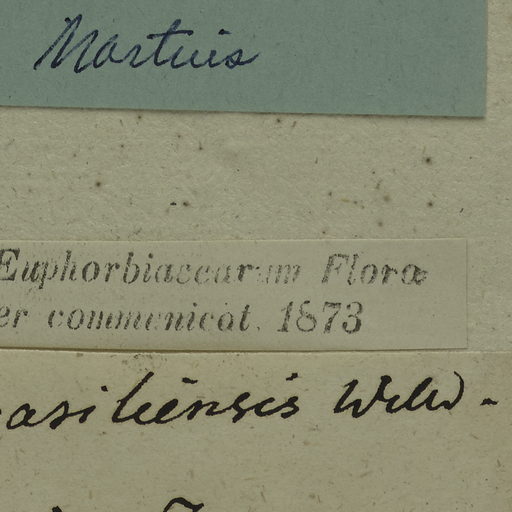 Martius
Euphorbiacearum Floræ
er communicat. 1873
asiliensis Willd.